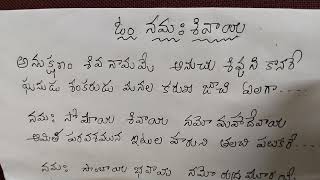 ఓం నమః శివాయ
అనుక్షణం శివ నామమ్మే అనుచు శివుని కానరే
ఘనుడు శంకరుడు మనల కరుణ జూచి ఏలగా....
నమః సోమాయ శివాయ నమో మహాదేవాయ
అమిత పరవశమున ఇటుల వారుని తలచి పలుకరే..
నమః సాంబాయ భవాయ నమో